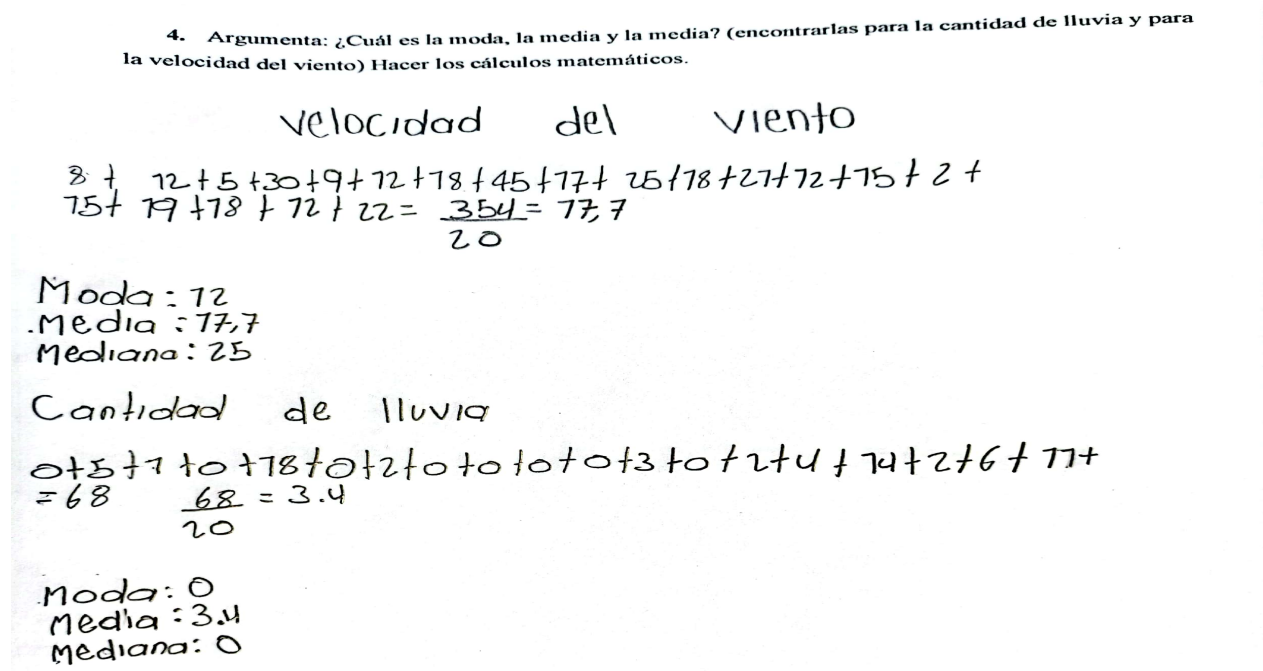 4. Argumenta: ¿Cuál es la moda, la media y la media? (encontrarlas para la cantidad de lluvia y para
la velocidad del viento) Hacer los cálculos matemáticos.
Velocidad del viento
8 + 12+5+30+9+12+18+45+17+ 25+18+27+12+15+2+
15+ 19+18+12+22= 354 = 17,7
20
Moda: 12
.Media: 17,7
Mediana: 25
Cantidad de lluvia
0+5+1+0+18+0+2+0+0+0+0+3+0+2+4+14+2+6+11+
=68 68 = 3.4
20
Moda: 0
Media: 3.4
Mediana: 0